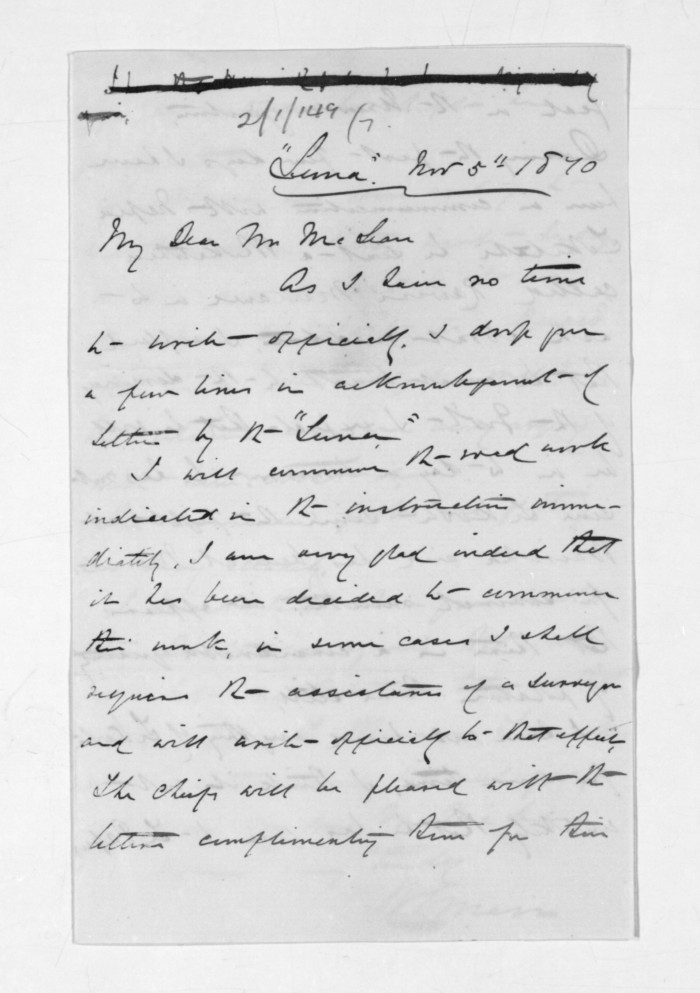 2/1/149
"Luna". Nov 5th 1870
My Dear Mr McLean
As I have no time
to write officially, I drop you
a few lines in acknowledgement of
letters by the "Luna"
I will commence the road work
indicated in the instructions imme-
diately, I am very glad indeed that
it has been decided to commence
this work, in some cases I shall
require the assistance of a Surveyor
and will write officially to that effect,
The chiefs will be pleased with the
letters complimenting them for their